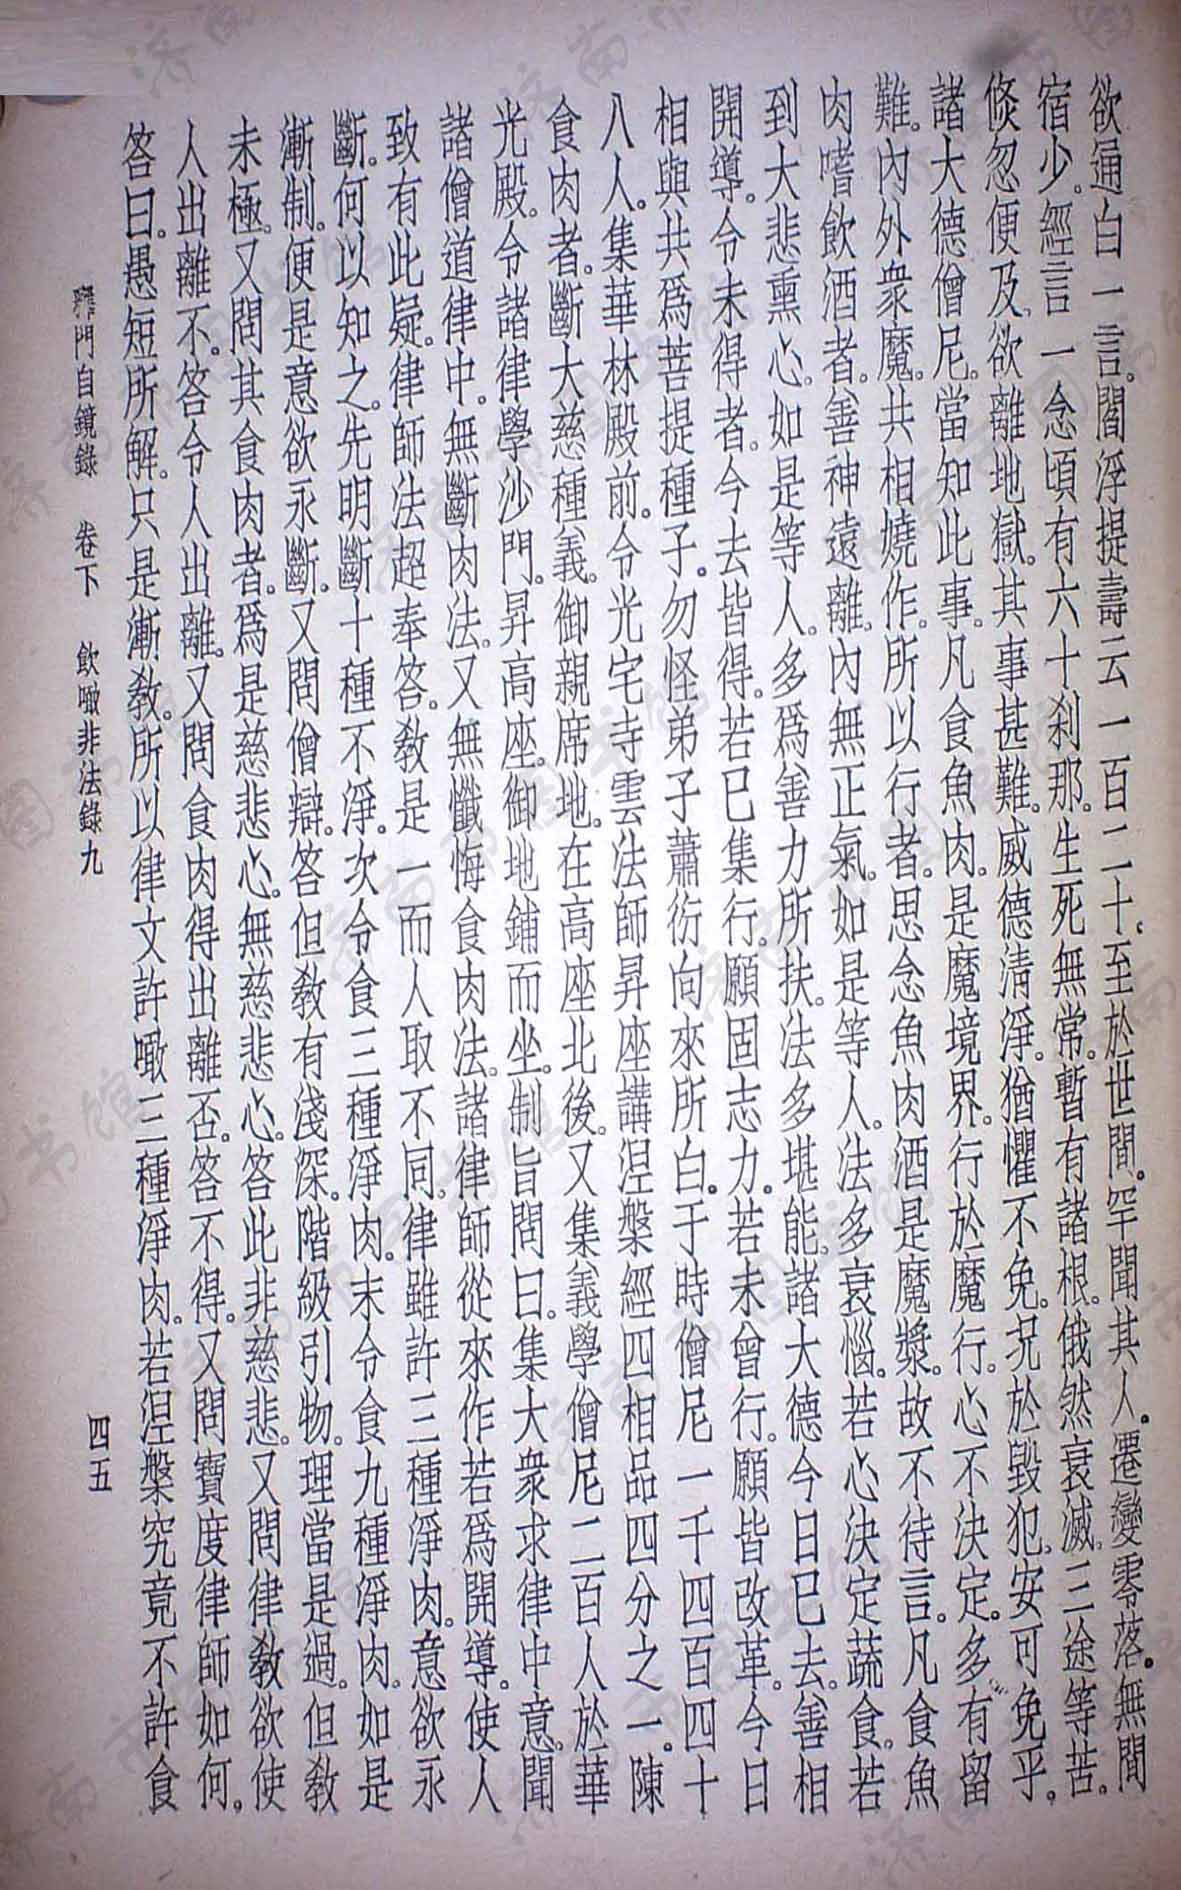 欲通白一言。閻浮提壽云一百二十。至於世間。罕聞其人。遷變零落。無間
宿少。經言一念頃有六十刹那。生死無常。暫有諸根。俄然衰滅。三途等苦。
倏忽便及。欲離地獄。其事甚難。威德清淨。猶懼不免。況於毀犯。安可免乎。
諸大德僧尼。當知此事。凡食魚肉。是魔境界。行於魔行。心不決定。多有留
難。內外衆魔。共相燒作。所以行者。思念魚肉酒是魔漿。故不待言。凡食魚
肉嗜飲酒者。善神遠離。內無正氣。如是等人。法多衰惱。若心決定蔬食。若
到大悲熏心。如是等人。多爲善力所扶。法多堪能。諸大德今日已去。善相
開導。令未得者。今去皆得。若已集行。願固志力。若未曾行。願皆改革。今日
相與共爲菩提種子。勿怪弟子蕭衍向來所白。于時僧尼一千四百四十
八人。集華林殿前。令光宅寺雲法師昇座講涅槃經四相品四分之一。陳
食肉者。斷大慈種義。御親席地。在高座北後。又集義學僧尼二百人於華
光殿。令諸律學沙門。昇高座。御地鋪而坐。制旨問曰。集大衆求律中意。聞
諸僧道律中。無斷肉法。又無懺悔食肉法。諸律師從來作若爲開導。使人
致有此疑。律師法超奉答。敎是一而人取不同。律雖許三種淨肉。意欲永
斷。何以知之。先明斷十種不淨。次令食三種淨肉。末令食九種淨肉。如是
漸制。便是意欲永斷。又問僧辯。答但敎有淺深。階級引物。理當是過。但敎
未極。又問其食肉者。爲是慈悲心。無慈悲心。答此非慈悲。又問律敎欲使
人出離不。答令人出離。又問食肉得出離否。答不得。又問寶度律師如何。
答曰。愚短所解。只是漸敎。所以律文許噉三種淨肉。若涅槃究竟不許食
釋門自鏡錄 卷下 飮噉非法錄九 四五